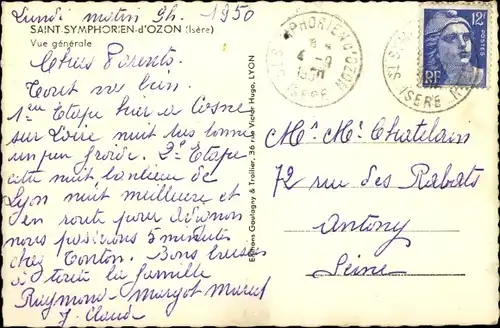 Lundi matin 9h. 1950
SAINT-SYMPHORIEN-d'OZON (Isère)
Vue générale
Chers Parents.
Tout va bien.
1ère Etape hier à Cosne
sur Loire nuit très bonne
un peu froide. 2e Etape
cette nuit banlieue de
Lyon nuit meilleure et
en route pour Avignon
nous passerons 5 minutes
chez Tonton. Bons baisers
à toute la famille
Raymond Margot Marcel
J. Claude
Editions Goutagny & Trollier, 36 rue Victor Hugo, LYON
ST SYMPHORIEN D'OZON
4 -9
1950
ISERE
12F
POSTES
RF
ISERE
Mr Me Chatelain
72 rue des Rabats
Antony
Seine